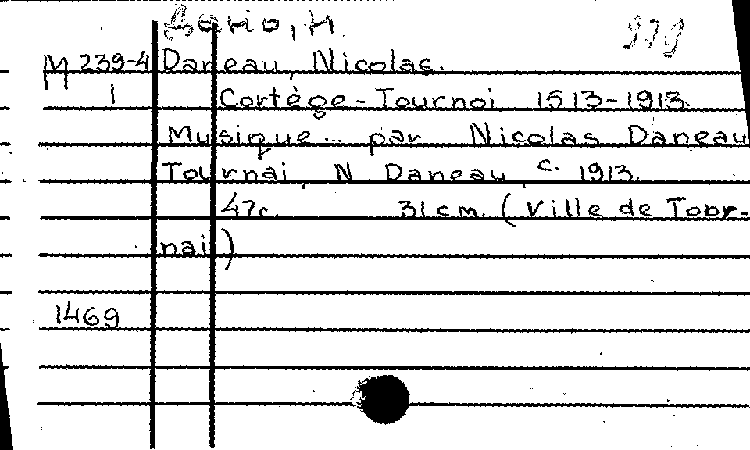 Дано, Н 979
M 239-4 Daneau, Nicolas.
1 Cortège-Tournoi 1513-1913.
Musique... par Nicolas Daneau
Tournai, N Daneau, c. 1913.
47c. 31cm. (Ville de Tour-
nai)
1469